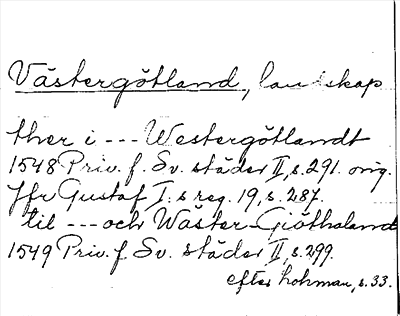 Västergötland, landskap
ther i --- Westergötlandt
1548 Priv. f. Sv. städer II, s. 291. orig.
Jfr Gustaf I:s reg. 19, s. 287.
til --- och Wäster-Giöthaland
1549 Priv. f. Sv. städer II, s. 299.
efter Lohman, s. 33.